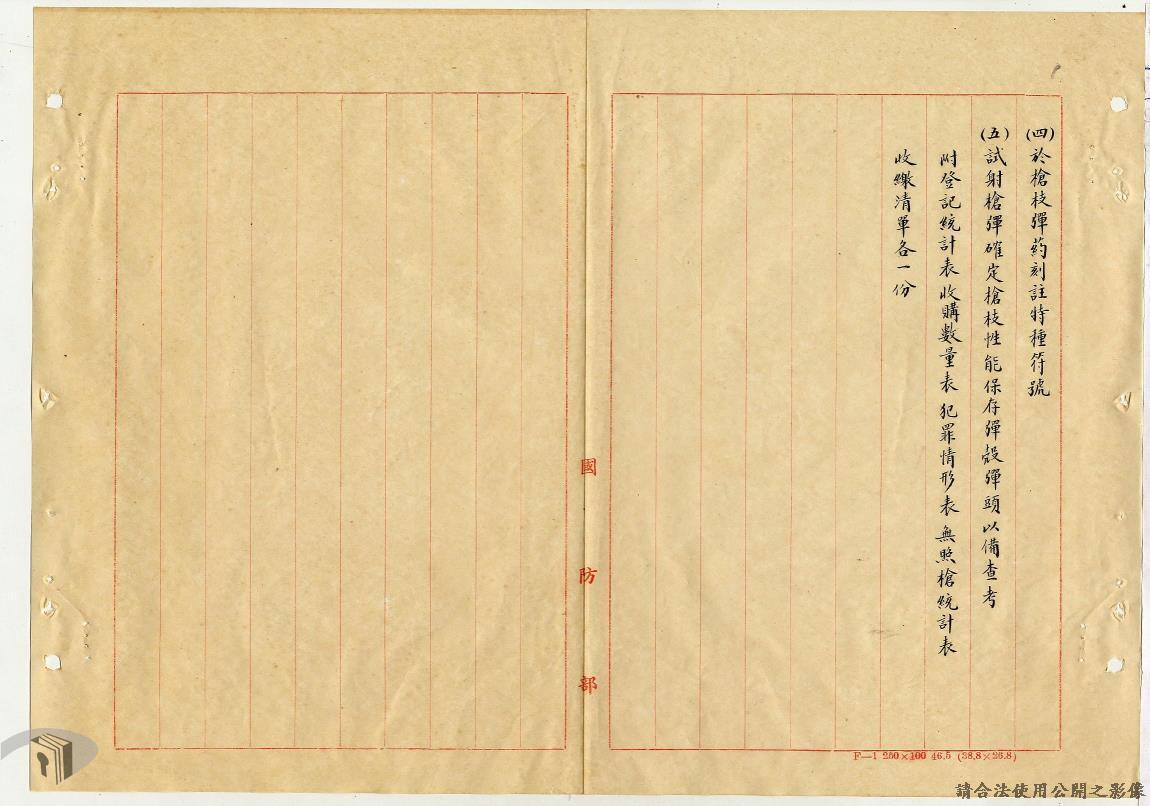 (四)於槍枝彈葯刻註特種符號
(五)試射槍彈確定槍枝性能保存彈殼彈頭以備查考
附登記統計表 收購數量表 犯罪情形表 無照槍統計表
收繳清單各一份
國防部
F—1 250×100 46.5 (38.8×26.8)
請合法使用公開之影像